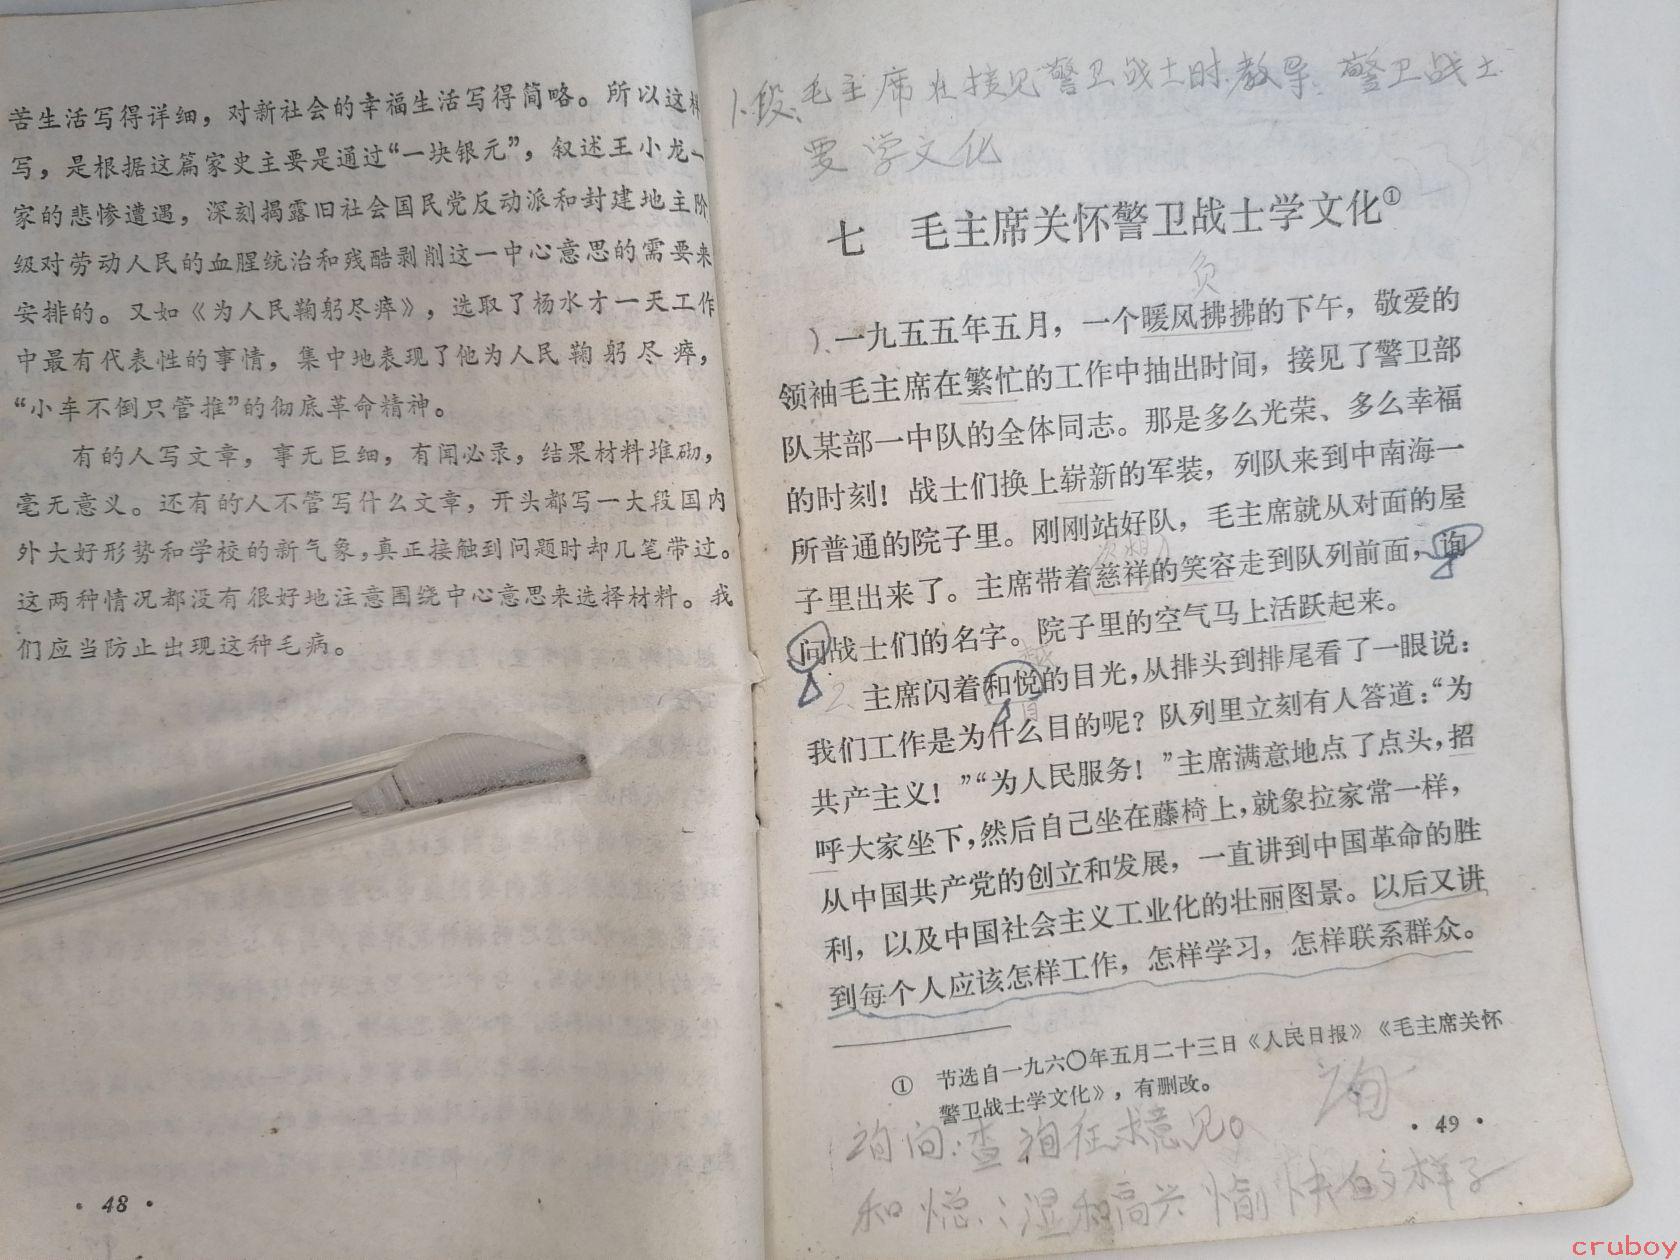 苦生活写得详细，对新社会的幸福生活写得简略。所以这样
写，是根据这篇家史主要是通过“一块银元”，叙述王小龙一
家的悲惨遭遇，深刻揭露旧社会国民党反动派和封建地主阶
级对劳动人民的血腥统治和残酷剥削这一中心意思的需要来
安排的。又如《为人民鞠躬尽瘁》，选取了杨水才一天工作
中最有代表性的事情，集中地表现了他为人民鞠躬尽瘁，
“小车不倒只管推”的彻底革命精神。
有的人写文章，事无巨细，有闻必录，结果材料堆砌，
毫无意义。还有的人不管写什么文章，开头都写一大段国内
外大好形势和学校的新气象，真正接触到问题时却几笔带过。
这两种情况都没有很好地注意围绕中心意思来选择材料。我
们应当防止出现这种毛病。
· 48 ·
1.段、毛主席在接见警卫战士时教导警卫战士
要学文化
七 毛主席关怀警卫战士学文化①
负
1、一九五五年五月，一个暖风拂拂的下午，敬爱的
领袖毛主席在繁忙的工作中抽出时间，接见了警卫部
队某部一中队的全体同志。那是多么光荣、多么幸福
的时刻！战士们换上崭新的军装，列队来到中南海一
所普通的院子里。刚刚站好队，毛主席就从对面的屋
子里出来了。主席带着慈祥的笑容走到队列前面，询
问战士们的名字。院子里的空气马上活跃起来。
2、主席闪着和悦的目光，从排头到排尾看了一眼说：
我们工作是为什么目的呢？队列里立刻有人答道：“为
共产主义！”“为人民服务！”主席满意地点了点头，招
呼大家坐下，然后自己坐在藤椅上，就象拉家常一样，
从中国共产党的创立和发展，一直讲到中国革命的胜
利，以及中国社会主义工业化的壮丽图景。以后又讲
到每个人应该怎样工作，怎样学习，怎样联系群众。
① 节选自一九六〇年五月二十三日《人民日报》《毛主席关怀
警卫战士学文化》，有删改。
询
· 49 ·
询问：查询征求意见。
和悦：温和高兴愉快的样子
cruboy